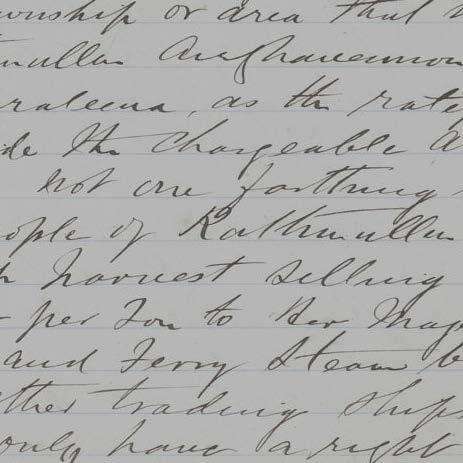 wnship or area that
mullan
as the rate
ide the Chargeable A
not one farthing
ople of Rathmullan
harvest selling
per Ton to Her Maje
and Ferry Steam b
ther trading ships
only have a right